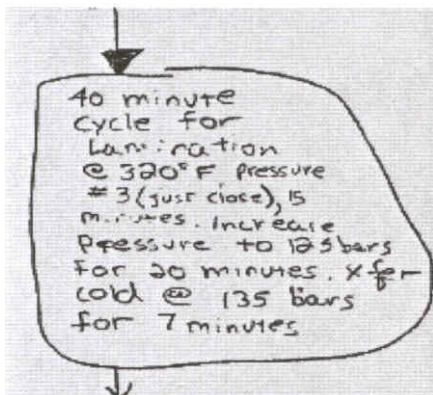 40 minute
cycle for
Lamination
@ 320°F pressure
#3 (just close), 15
minutes. Increase
Pressure to 125 bars
for 20 minutes. Xfer
cold @ 135 bars
for 7 minutes